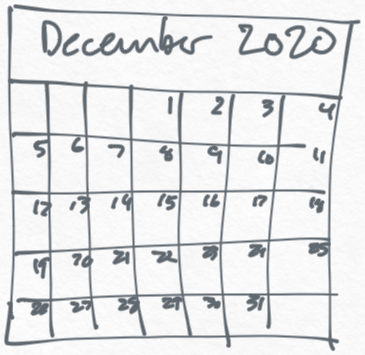 December 2020
1 2 3 4
5 6 7 8 9 10 11
12 13 14 15 16 17 18
19 20 21 22 23 24 25
26 27 28 29 30 31